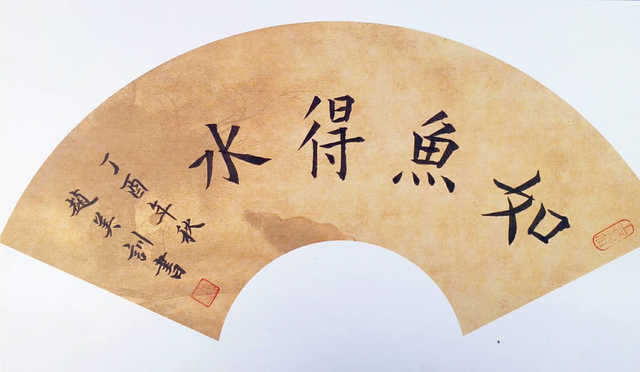 如魚得水
丁酉年秋
趙美訓書